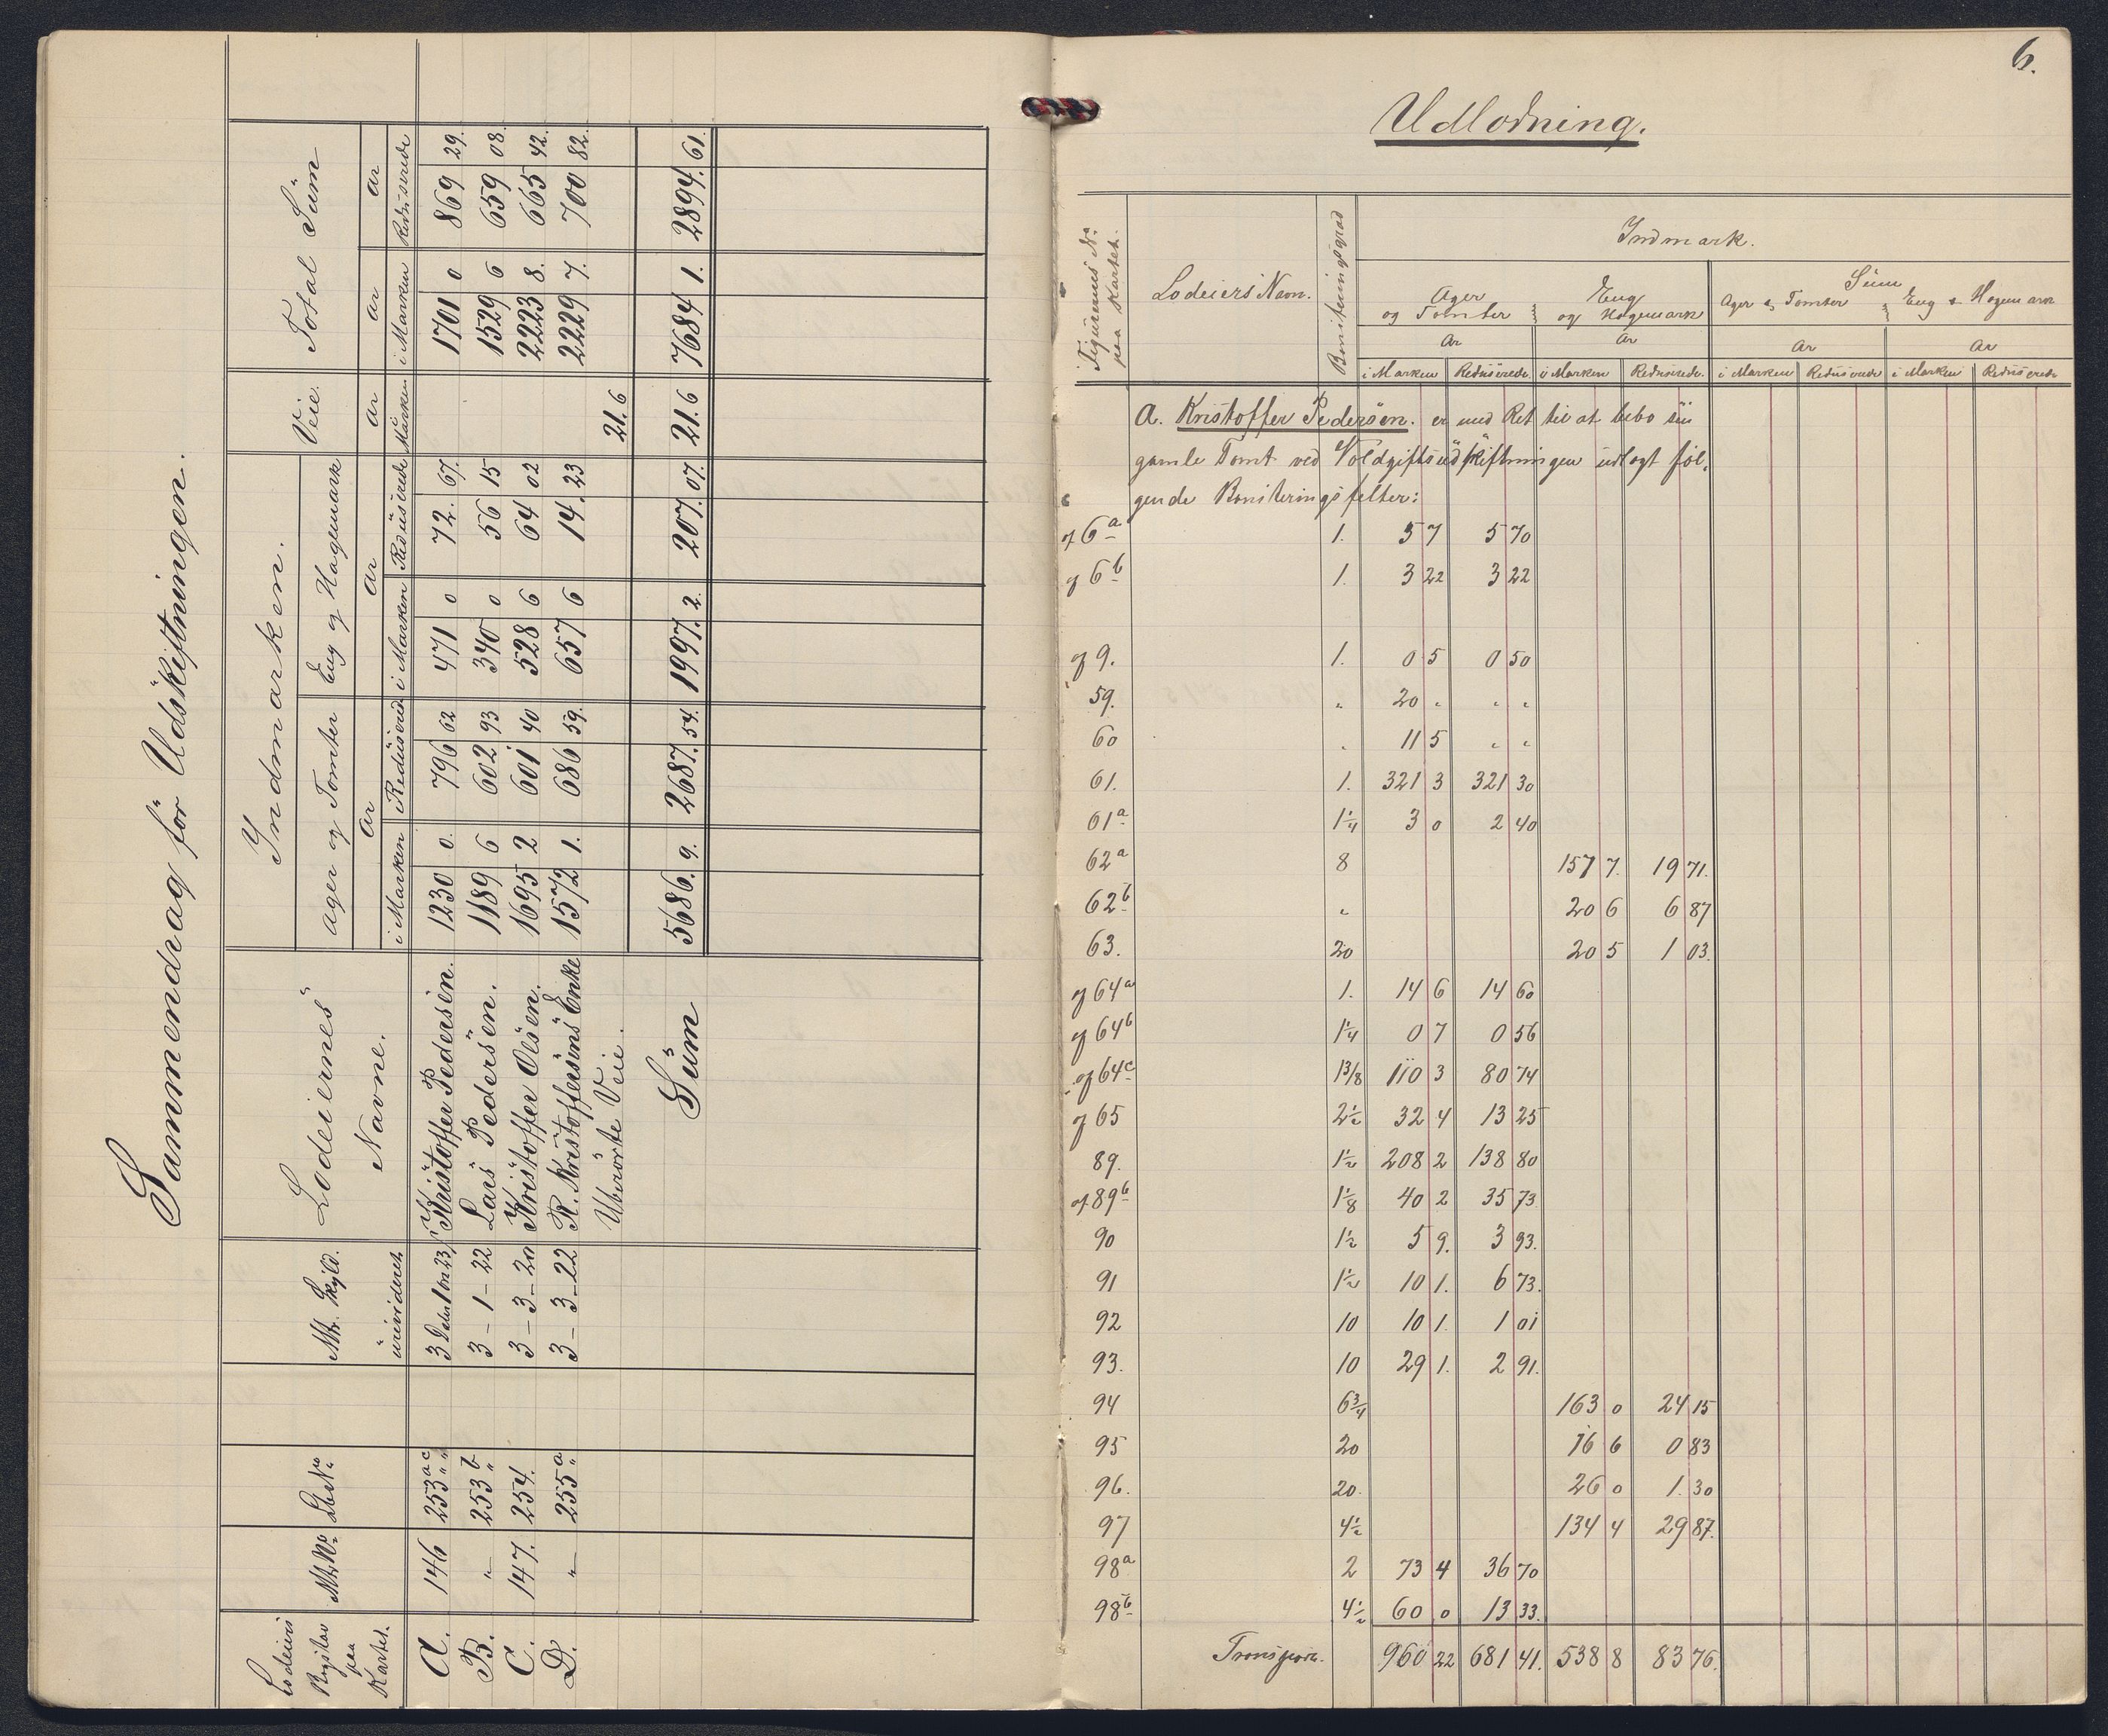 Sammendrag för Udskiftningen.
Lodeiers Bogstav paa Kartet. | Mtr. No | Lbe No | Mtr. Skyld ürevideret | Lodeiernes Navne. | Indmarken. | Veie. | Total Süm
Ager og Tomter | Eng og Hagemark
Ar | Ar | Ar | Ar | Ar
i Marken | Redüsered | i Marken | Redüserede | i Marken | i Marken | Redüserede
A. | 146 | 253 a c | 3 Daler 1 Ort 23 ʃ | Kristoffer Pedersen. | 1230 0. | 796 62 | 471 0 | 72. 67. | 1701 0 | 869 29.
B. | " | 253 b | 3 - 1 - 22 | Lars Pedersen. | 1189 6 | 602 93 | 340 0 | 56 15 | 1529 6 | 659 08.
C. | 147. | 254. | 3 - 3 - 20 | Kristoffer Olsen. | 1695 2 | 601 40 | 528 6 | 64 02 | 2223 8. | 665 42.
D. | " | 255 a | 3 - 3 - 22 | R. Kristoffersens Enke | 1572 1. | 686 59. | 657 6 | 14. 23 | 2229 7. | 700 82.
Uberörte Veie. | 21. 6
Süm | 5686. 9. | 2687. 54. | 1997. 2. | 207. 07. | 21. 6 | 7684 1. | 2894. 61.
6.
Udlodning.
Figurernes No paa Kartet. | Lodeiers Navn. | Boniteringsgrad | Indmark.
Ager og Tomter | Eng og Hagemark | Süm
Ager & Tomter | Eng & Hagemark
Ar | Ar | Ar | Ar
i Marken | Redüserede | i Marken | Redüserede | i Marken | Redüserede | i Marken | Redüserede
A. Kristoffer Pedersen. er med Ret til at bebo sin
gamle Tomt ved Voldgiftsüdskiftningen üdlagt föl-
gende Boniteringsfelter:
af 6 a | 1. | 5 7 | 5 70
af 6 b | 1. | 3 22 | 3 22
af 9. | 1. | 0 5 | 0 50
59. | " | 20 " | " "
60 | " | 11 5 | " "
61. | 1. | 321 3 | 321 30
61 a | 1 1/4 | 3 0 | 2 40
62 a | 8 | 157 7. | 19 71.
62 b | " | 20 6 | 6 87
63. | 20 | 20 5 | 1 03.
af 64 a | 1. | 14 6 | 14 60
af 64 b | 1 1/4 | 0 7 | 0 56
af 64 c | 1 3/8 | 110 3 | 80 74
af 65 | 2 1/2 | 32 4 | 13 25
89. | 1 1/2 | 208 2 | 138 80
af 89 b | 1 1/8 | 40 2 | 35 73
90 | 1 1/2 | 5 9. | 3 93.
91 | 1 1/2 | 10 1. | 6 73.
92 | 10 | 10 1. | 1 01
93. | 10 | 29 1. | 2 91.
94 | 6 3/4 | 163 0 | 24 15
95 | 20 | 16 6 | 0 83
96. | 20. | 26 0 | 1. 30
97 | 4 1/2 | 134 4 | 29 87.
98 a | 2 | 73 4 | 36 70
98 b | 4 1/2 | 60 0 | 13 33.
Transport. | 960 22 | 681 41. | 538 8 | 83 76.